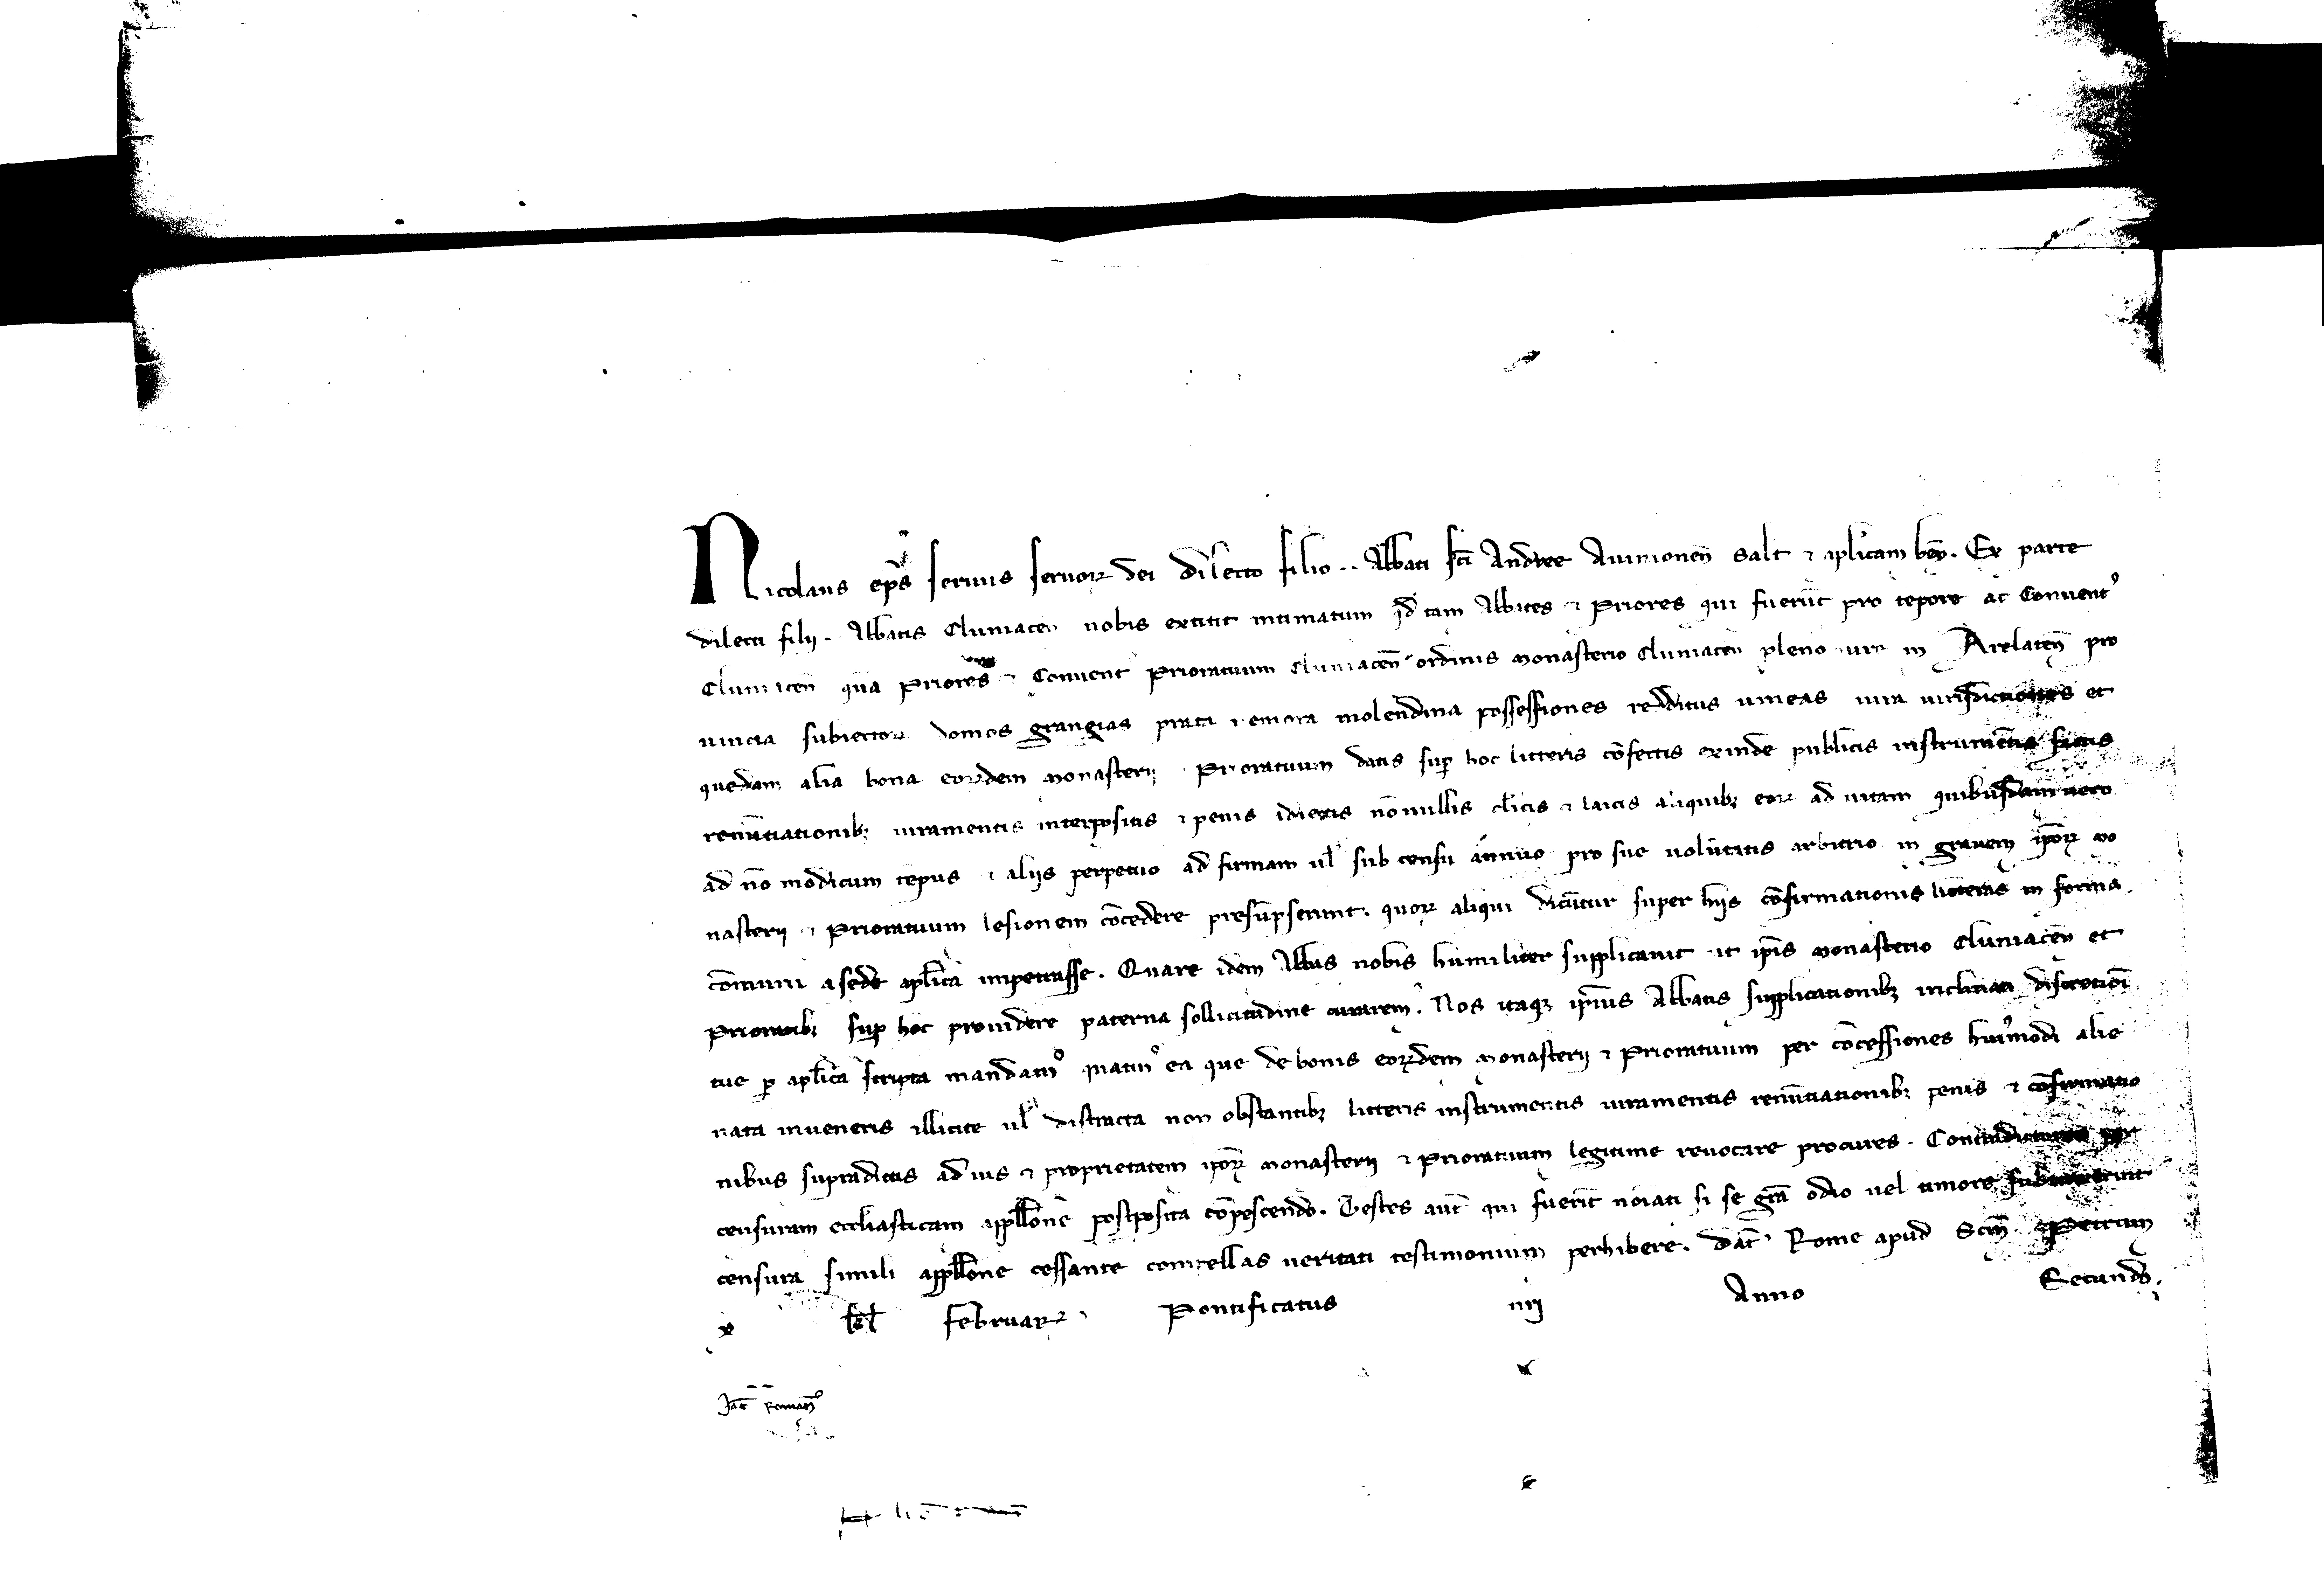 Nicolaus ep̄s seruus seruoꝝ dei Dilecto filio .. Abbati sc̄i Andree Auinionen̄ salt̄ ⁊ aplicam ben̄. Ex parte
dilecti filii . Abbatis Cluniacen̄ nobis extitit intimatum qd̄ tam Abbates ⁊ Priores qui fuerūt pro tēpore ac Conuentꝰ
Cluniacen̄ qua Priores ⁊ Conuent Prioratuum Cluniacen̄ ordinis monasterio Cluniacen̄ pleno iure in Arelaten̄ pro
uincia subiectoꝝ domos grangias prata nemora molendina possessiones redditus uineas iura iurisdictiones et
quedam alia bona eoꝝdem monasterij Prioratuum datis suꝑ hoc litteris cōfectis exinde publicis instrumentis factis
renūtiationibꝫ iuramentis interpositis ⁊ penis adiectis nōnullis cl̄icis ⁊ laicis aliquibꝫ eoꝝ ad uitam quibusdam uero
ad nō modicum tēpus ⁊ aliis perpetuo ad firmam ul̄ sub censu annuo pro sue uolūtatis arbitrio in grauem ip̄oꝝ mo
nasterij ⁊ Prioratuum lesionem cōcedere presūpserunt. quoꝝ aliqui dicūtur super hiis cōfirmationis litteras in forma
cōmuni a sede apl̄ica impetrasse. Quare idem Abbas nobis humiliter supplicauit ut ip̄is monasterio Cluniacen̄ et
Prioratibꝫ suꝑ hoc prouidere paterna sollicitudine curarem̄. Nos itaqꝫ ip̄ius Abbatis supplicationibꝫ inclinati discretioī
tue ꝑ apl̄ica scripta mandamꝰ quatinꝰ ea que de bonis eoꝝdem monasterij ⁊ Prioratuum per cōcessiones huiꝰmodi alie
nata inueneris illicite ul̄ distracta non obstantibꝫ litteris instrumentis iuramentis renūtiationibꝫ penis ⁊ cōfirmatio
nibus supradictis ad ius ⁊ proprietatem ip̄oꝝ monasterij ⁊ Prioratuum legitime reuocare procures . Contradictores per
censuram eccl̄iasticam appll̄one postposita cōpescendo. Testes aut̄ qui fuerīt noīati si se gr̄a odio uel timore subtraxerint
censura simili appll̄one cessante compellas ueritati testimonium perhibere. Dat̄ Rome apud Scm̄ Petrum
x kl̄ Februaꝝ Pontificatus nrī Anno Secundo.
Jac̄ Romanꝰ